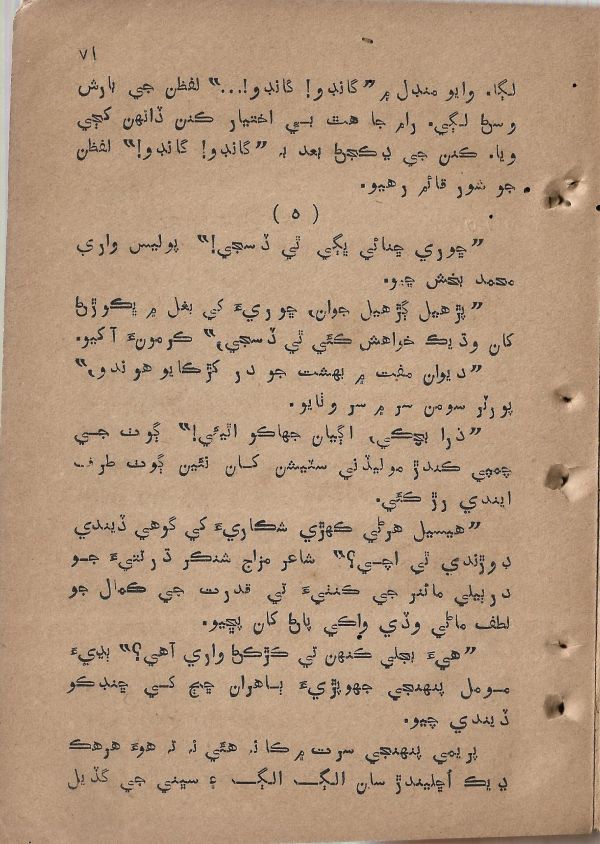 ٧١
لڳا. وايو منڊل ۾ ”گانڊو! گانڊو!...“ لفظن جي بارش
وسڻ لڳي. رام جا هٿ بي اختيار ڪنن ڏانهن کڄي
ويا. ڪنن جي ڍڪجڻ بعد به ”گانڊو! گانڊو!“ لفظن
جو شور قائم رهيو.
( ٥ )
”ڇوري چنائي ڀڳي ٿي ڏسجي!“ پوليس واري
محمد بخش چيو.
”پڙهيل ڳڙهيل جوان، ڇوريءَ کي بغل ۾ ڀڪوڙڻ
کان وڌيڪ خراهش ڪئي ٿي ڏسجي،“ ڪرمونءَ آکيو.
”ديوان مفت ۾ بهشت جو در کڙڪايو هوندو،“
پورٽر سومن سر ۾ سر وٺايو.
”ذرا بچڪي، اڳيان جهاڪو اٿيئي!“ ڳوٺ جي
چمچي ڪندڙ موليڏني سٽيشن کان نئين ڳوٺ طرف
ايندي رڙ ڪئي.
”هيسيل هرڻي ڪهڙي شڪاريءَ کي گوهي ڏيندي
ڊوڙندي ٿي اچي؟“ شاعر مزاج شنڪر ڌرتيءَ جو
درٻيلي مائنر جي ڪنٺيءَ تي قدرت جي ڪمال جو
لطف ماڻي وڏي واڪي پاڻ کان پڇيو.
”هيءَ بجلي ڪنهن تي ڪڙڪڻ واري آهي؟“ ٻڍيءَ
مومل پنهنجي جهوپڙيءَ ٻاهران ڇڄ کي ڇنڊڪو
ڏيندي چيو.
پريمي پنهنجي سرت ۾ ڪانه هئي نه ته هوءَ هرهڪ
ڍيڪ اڇليندڙ سان الڳ الڳ ۽ سڀني جي گڏيل